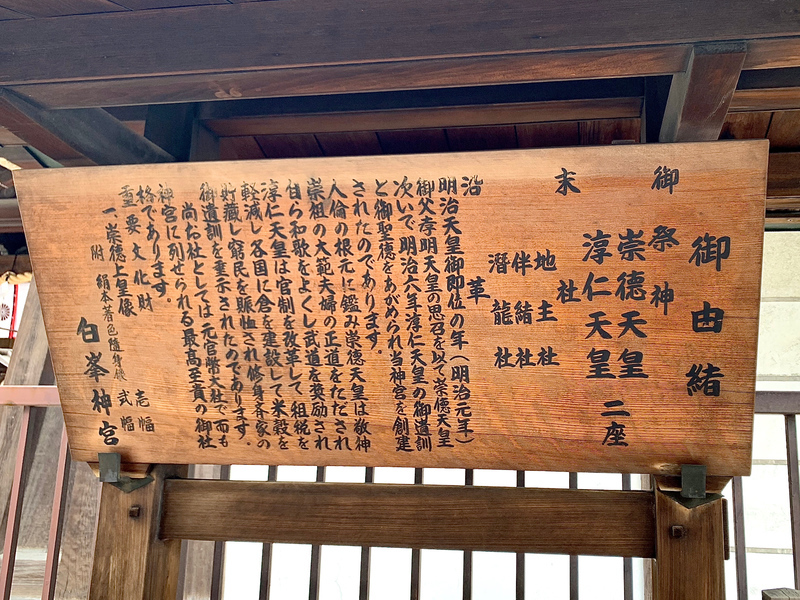 御由緒
御祭神
崇徳天皇
淳仁天皇 二座
末社
地主社
伴緒社
潜龍社
沿革
明治天皇御即位の年（明治元年）
御父孝明天皇の思召を以て崇徳天皇
次いで明治六年淳仁天皇の御遺訓
と御聖徳をあがめられ当神宮を創建
されたのであります。
人倫の根元に鑑み崇徳天皇は敬神
崇祖の大範夫婦の正道をたださされ
自ら和歌をよくし武道を奨励され
淳仁天皇は官制を改革して租税を
軽減し各国に倉を建設して米穀を
貯蔵し窮民を賑恤され修身斉家の
御遺訓を垂示されたのであります。
尚お社としては元官幣大社で而も
神宮に列せられる最高至貴の御社
格であります。
重要文化財
一、崇徳上皇像 壱幅
附 絹本著色随身像 弐幅
白峯神宮